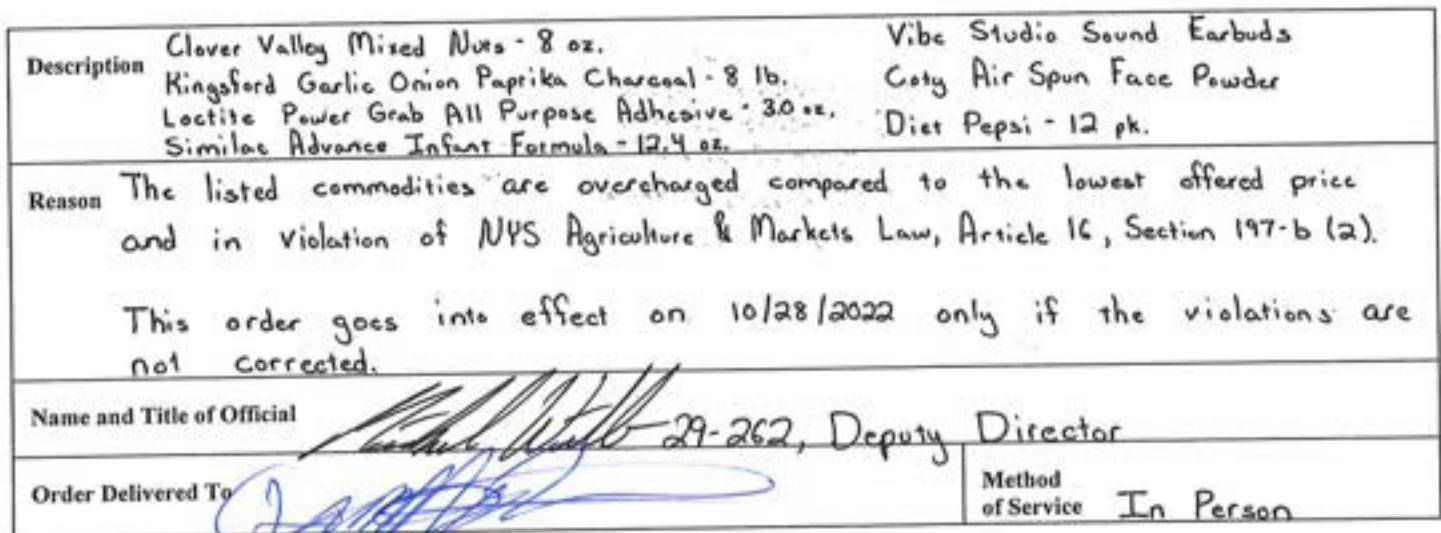 Description
Clover Valley Mixed Nuts - 8 oz.
Kingsford Garlic Onion Paprika Charcoal - 8 lb.
Loctite Power Grab All Purpose Adhesive - 3.0 oz.
Similac Advance Infant Formula - 12.4 oz.
Vibe Studio Sound Earbuds
Coty Air Spun Face Powder
Diet Pepsi - 12 pk.
Reason The listed commodities are overcharged compared to the lowest offered price
and in violation of NYS Agriculture & Markets Law, Article 16, Section 197-b (2).
This order goes into effect on 10/28/2022 only if the violations are
not corrected.
Name and Title of Official 29-262, Deputy Director
Order Delivered To
Method
of Service In Person